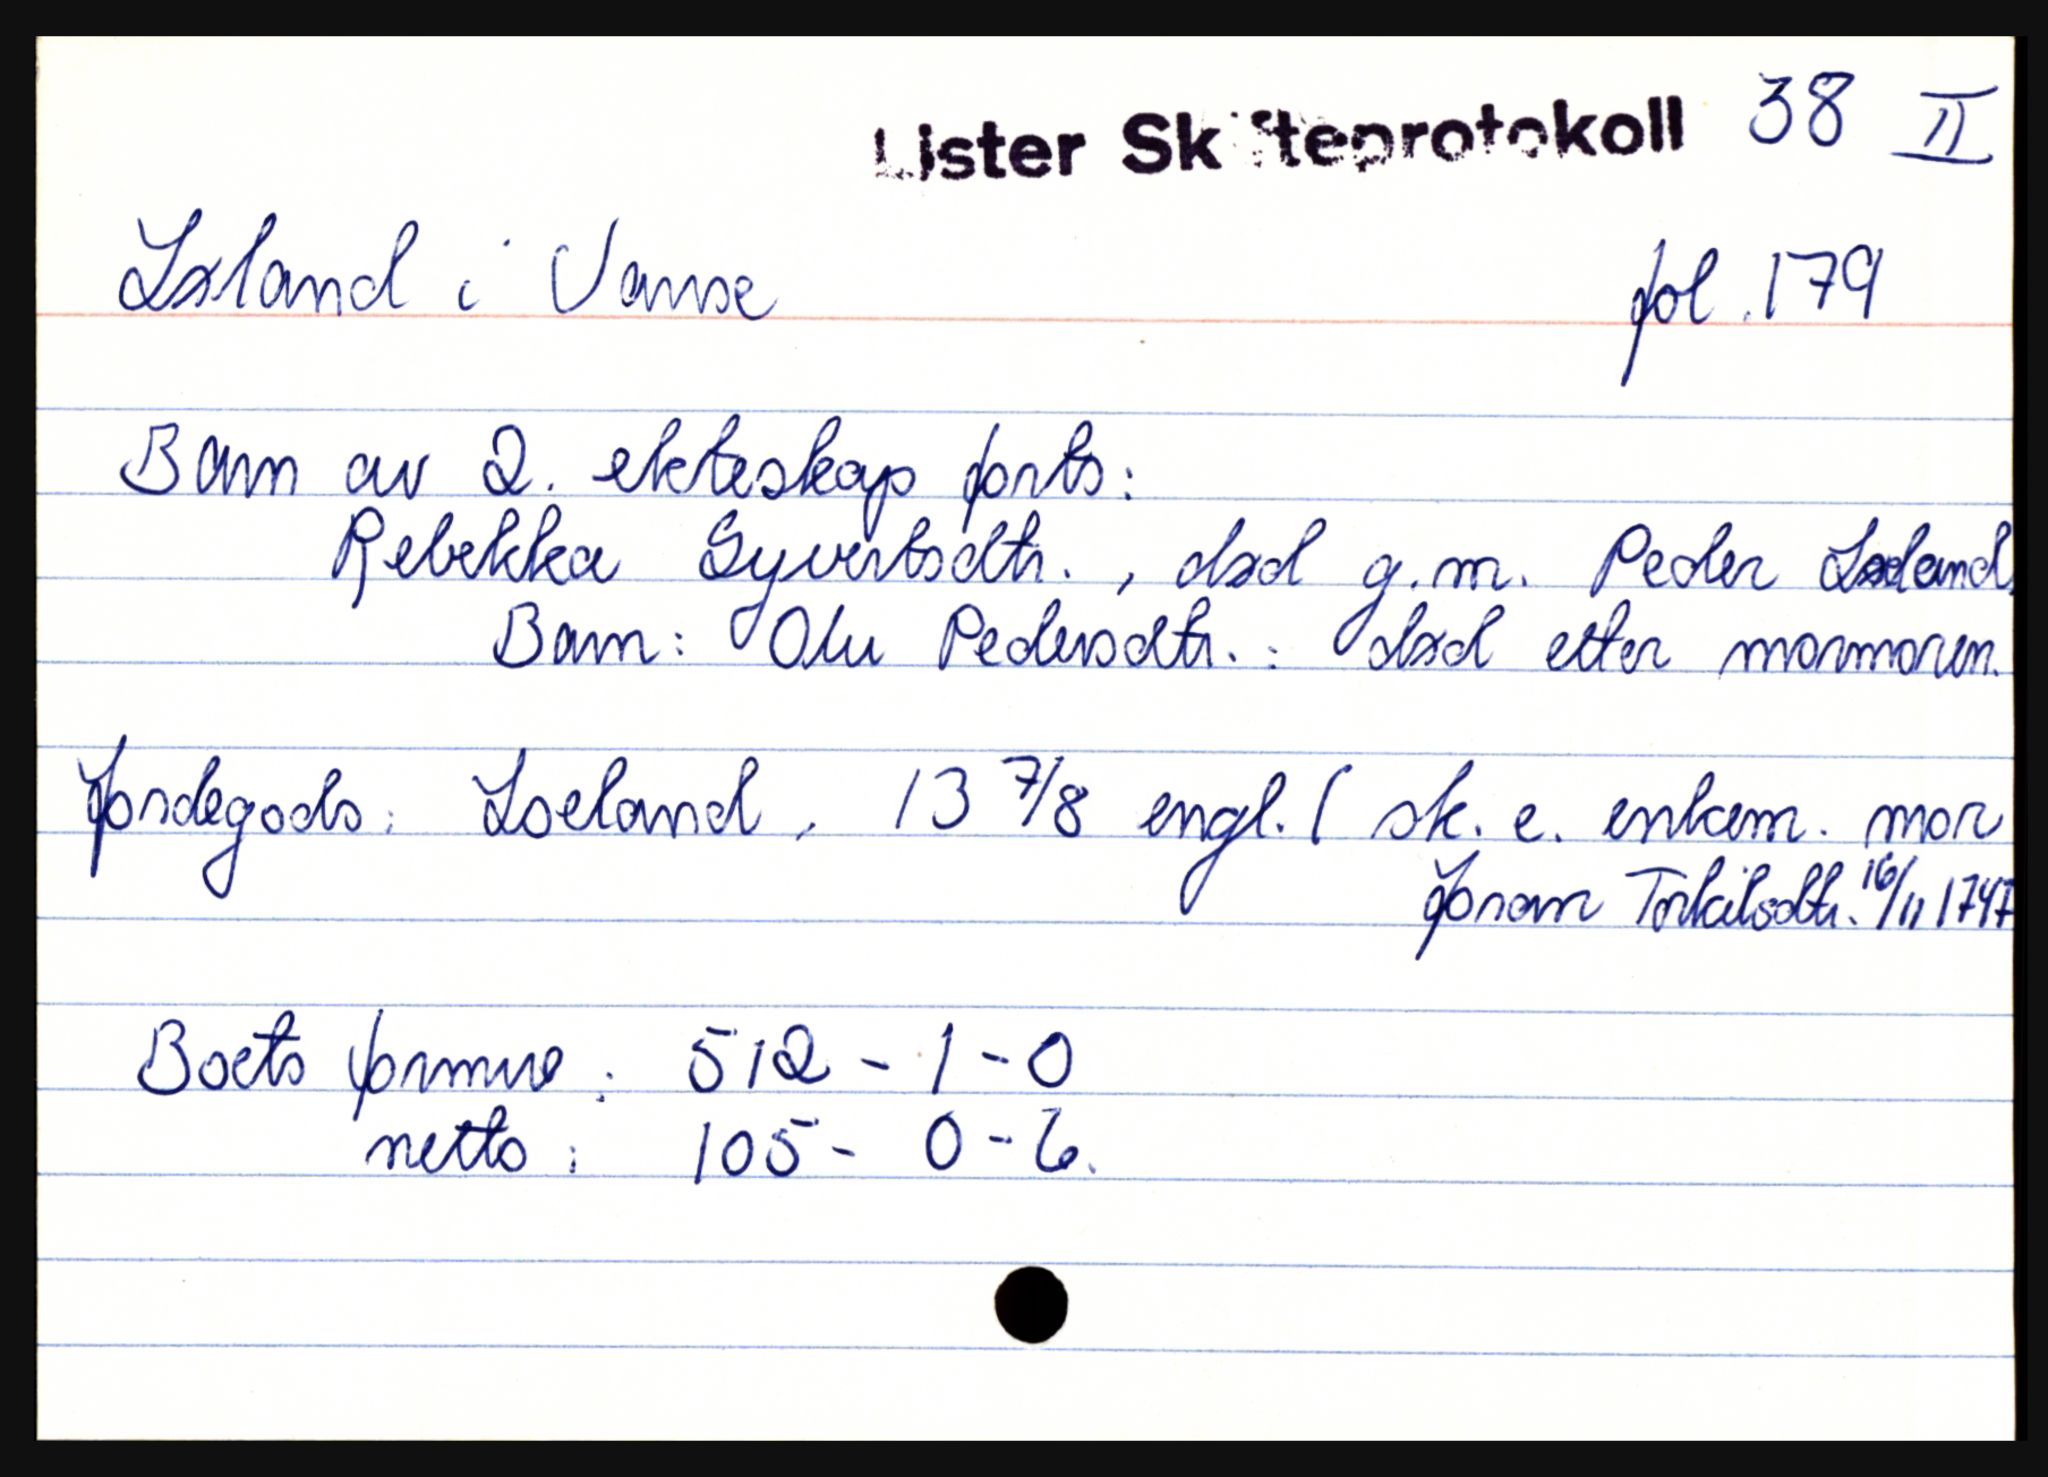 Lister Skifteprotokoll 38 II
Løland i Vanse fol. 179
Barn av 2. ekteskap forts:
Rebekka Syvertsdtr., død g.m. Peder Løland.
Barn: Olu Pedersdtr.: død etter mormoren.
Jordegods: Loeland, 13 7/8 engl. ( sk. e. enkem. mor
Joran Torkilsdtr. 16/11 1747
Boets formue: 512 - 1 - 0
netto: 105 - 0 - 6.